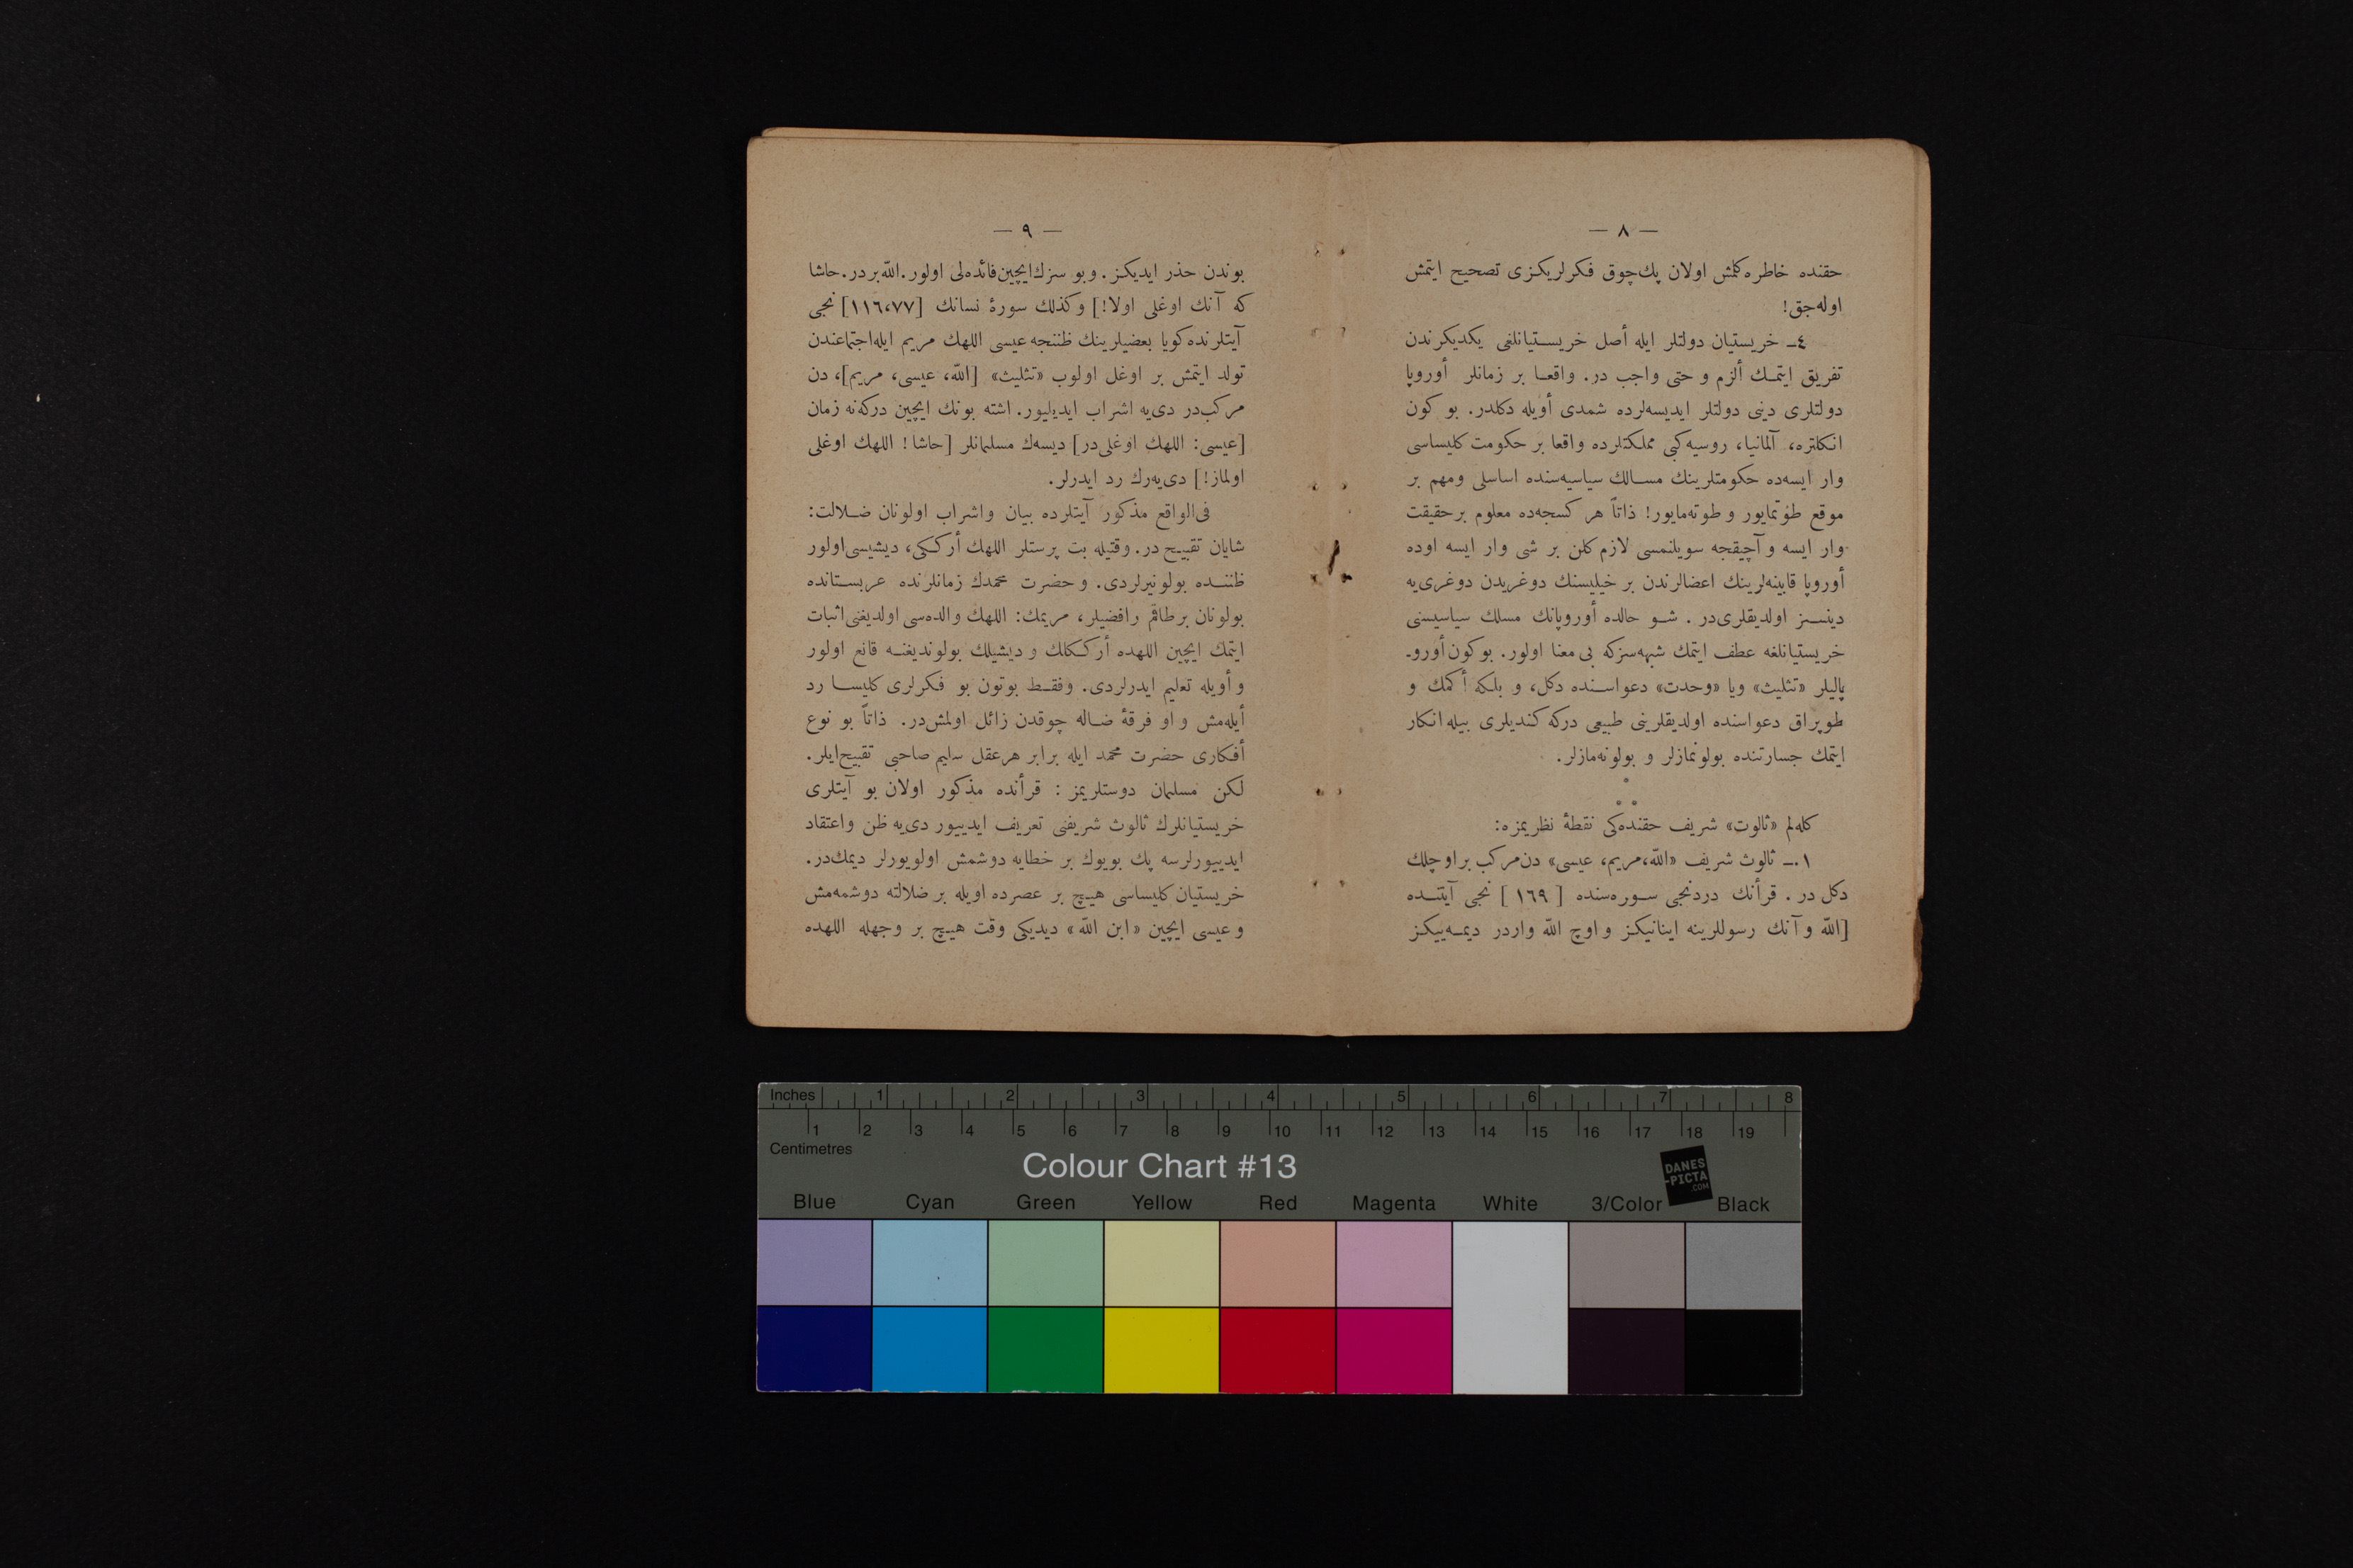 — ٨ —
حقنده خاطره كلمش اولان پك‌چوق فكرلريكزى تصحيح ايتمش
اوله‌جق!
٤ـ خريستيان دولتلر ايله أصل خريستيانلغى يكديكرندن
تفريق ايتمك ألزم و حتى واجب در. واقعا بر زمانلر أوروپا
دولتلرى دينى دولتلر ايديسه‌لرده شمدى أويله دكلدر. بو كون
انكلتره، آلمانيا، روسيه كبى مملكتلرده واقعا بر حكومت كليساسى
وار ايسه‌ده حكومتلرينك مسالك سياسيه‌سنده اساسلى ومهم بر
موقع طوتمايور و طوته‌مايور! ذاتاً هر كسجه‌ده معلوم برحقيقت
وار ايسه و آچيقجه سويلنمسى لازم كلن بر شى وار ايسه اوده
أوروپا قابينه‌لرينك اعضالرندن بر خيليسنك دوغريدن دوغرى‌يه
دينسز اولديقلرى‌در . شو حالده أوروپانك مسلك سياسيسنى
خريستيانلغه عطف ايتمك شبهه‌سزكه بى معنا اولور. بوكون أوروـ
پاليلر «تثليث» ويا «وحدت» دعواسنده دكل، و بلكه أكمك و
طوپراق دعواسنده اولديقلرينى طبيعى دركه كنديلرى بيله انكار
ايتمك جسارتنده بولونمازلر و بولونه‌مازلر.
كله‌لم «ثالوت» شريف حقنده‌كى نقطهٔ نظريمزه:
١.ـ ثالوث شريف «الله،مريم، عيسى» دن‌مركب براوچلك
دكل در . قرأنك دردنجى سوره‌سنده [ ١٦٩ ] نجى آيتنده
[الله و آنك رسوللرينه اينانيكز و اوچ الله واردر ديمه‌ييكز
— ٩ —
بوندن حذر ايديكز. وبو سزك‌ايچين‌فائده‌لى اولور.الله‌بردر.حاشا
كه آنك اوغلى اولا!] وكذلك سورهٔ نسانك [١١٦،٧٧] نجى
آيتلرنده كويا بعضيلرينك ظننجه عيسى اللهك مريم ايله‌اجتماعندن
تولد ايتمش بر اوغل اولوب «تثليث» [الله، عيسى، مريم]، دن
مركب‌در دى‌يه اشراب ايديليور. اشته بونك ايچين دركه‌نه زمان
[عيسى: اللهك اوغلى‌در] ديسه‌ك مسلمانلر [حاشا! اللهك اوغلى
اولماز!] دى‌يه‌رك رد ايدرلر.
فى‌الواقع مذكور آيتلرده بيان واشراب اولونان ضلالت:
شايان تقبيح در. وقتيله بت پرستلر اللهك أرككى، ديشيسى‌اولور
ظننده بولونيرلردى. و حضرت محمدك زمانلرنده عربستانده
بولونان برطاقم رافضيلر، مريمك: اللهك والده‌سى اولديغنى‌اثبات
ايتمك ايچين اللهده أركك‌لك و ديشيلك بولونديغنه قانع اولور
و أويله تعليم ايدرلردى. وفقط بوتون بو فكرلرى كليسا رد
أيله‌مش و او فرقهٔ ضاله چوقدن زائل اولمش‌در. ذاتاً بو نوع
أفكارى حضرت محمد ايله برابر هرعقل سليم صاحبى تقبيح‌ايلر.
لكن مسلمان دوستلريمز : قرأنده مذكور اولان بو آيتلرى
خريستيانلرك ثالوث شريفنى تعريف ايدييور دى‌يه ظن واعتقاد
ايدييورلرسه پك بويوك بر خطايه دوشمش اولويورلر ديمك‌در.
خريستيان كليساسى هيچ بر عصرده اويله بر ضلالته دوشمه‌مش
و عيسى ايچين «ابن الله» ديديكى وقت هيچ بر وجهله اللهده
Inches 1 2 3 4 5 6 7 8
1 2 3 4 5 6 7 8 9 10 11 12 13 14 15 16 17 18 19
Centimetres
Colour Chart #13
DANES
-PICTA
.COM
Blue Cyan Green Yellow Red Magenta White 3/Color Black